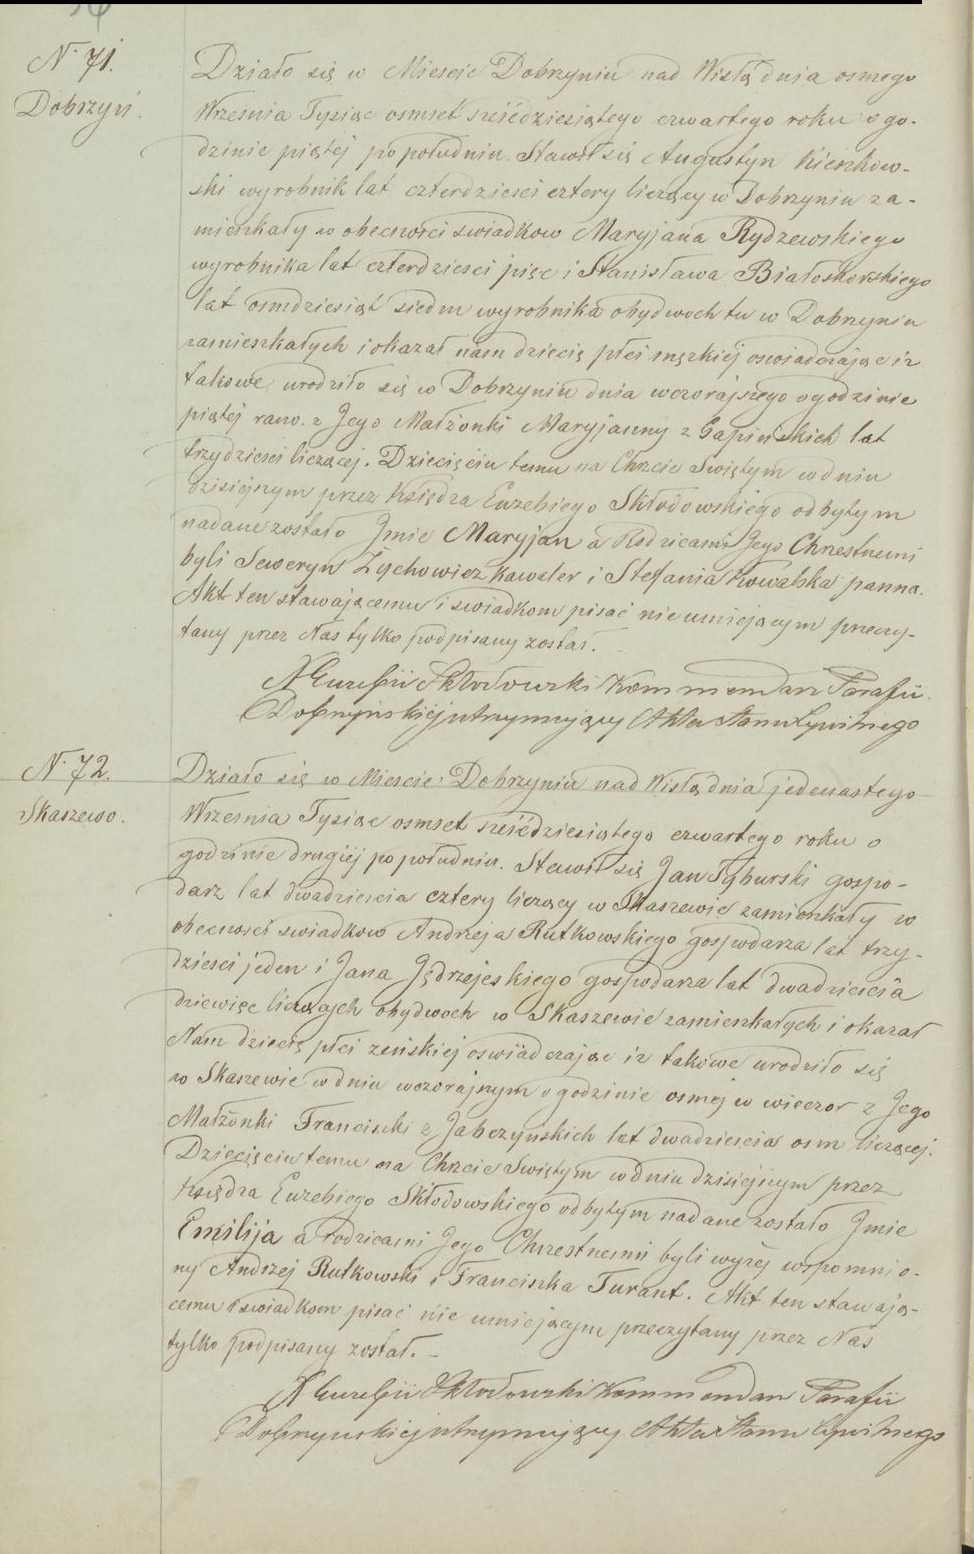 N. 71.
Dobrzyń.
Działo się w Miescie Dobrzyniu nad Wisłą dnia osmego
Wrzesnia Tysiąc osmset sześćdziesiątego czwartego roku o go-
dzinie piątej po południu. Stawił się Augustyn Kieszkow-
ski wyrobnik lat czterdziesci cztery liczący w Dobrzyniu za-
mieszkały w obecności swiadkow Maryjana Rydzewskiego
wyrobnika lat czterdziesci pięc i Stanisława Białoskorskiego
lat osmdziesiąt siedm wyrobnika obydwoch tu w Dobrzyniu
zamieszkałych i okazał nam dziecię płci męzkiéj oswiadczając iz
takowe urodziło się w Dobrzyniu dnia wczorajszego o godzinie
piątej rano. z Jego Małżonki Maryjanny z Gapińskich lat
trzydziesci liczącej. Dziecięciu temu na Chrzcie Swiętym w dniu
dzisiejszym przez Księdza Euzebiego Skłodowskiego odbytym
nadane zostało Jmie Maryjan a Rodzicami Jego Chrzestnemi
byli Seweryn Zychowicz kawaler i Stefania Kowalska panna.
Akt ten stawającemu i swiadkom pisać nie umiejącym przeczy-
tany przez Nas tylko podpisany został.
X Euzebii Skłodowski Kommendarz Parafii
Dobrzyńskiej utrzymujący Akta Stanu Cywilnego
N. 72.
Skaszewo.
Działo się w Miescie Dobrzyniu nad Wisłą dnia jedenastego
Wrzesnia Tysiąc osmset sześćdziesiątego czwartego roku o
godzinie drugiej po południu. Stawił się Jan Tyburski gospo-
darz lat dwadziescia cztery liczący w Skaszewie zamieszkały w
obecności swiadkow Andrzeja Rutkowskiego gospodarza lat trzy-
dziesci jeden i Jana Jędrzejeskiego gospodarza lat dwadziescia
dziewięc liczących obydwoch w Skaszewie zamieszkałych i okazał
Nam dziecię płci zeńskiej oswiadczając iz takowe urodziło się
w Skaszewie w dniu wczorajszym o godzinie osmej w wieczor z Jego
Małżonki Franciszki z Jabczyńskich lat dwadziescia osm liczącej.
Dziecięciu temu na Chrzcie Swiętym w dniu dzisiejszym przez
Księdza Euzebiego Skłodowskiego odbytym nadane zostało Jmie
Emilija a rodzicami Jego Chrzestnemi byli wyżej wspomnio-
ny Andrzej Rutkowski i Franciszka Turant. Akt ten stawają-
cemu i swiadkom pisać nie umiejącym przeczytany przez Nas
tylko podpisany został.
X Euzebii Skłodowski Kommendarz Parafii
Dobrzynskiej utrzymujący Akta Stanu Cywilnego